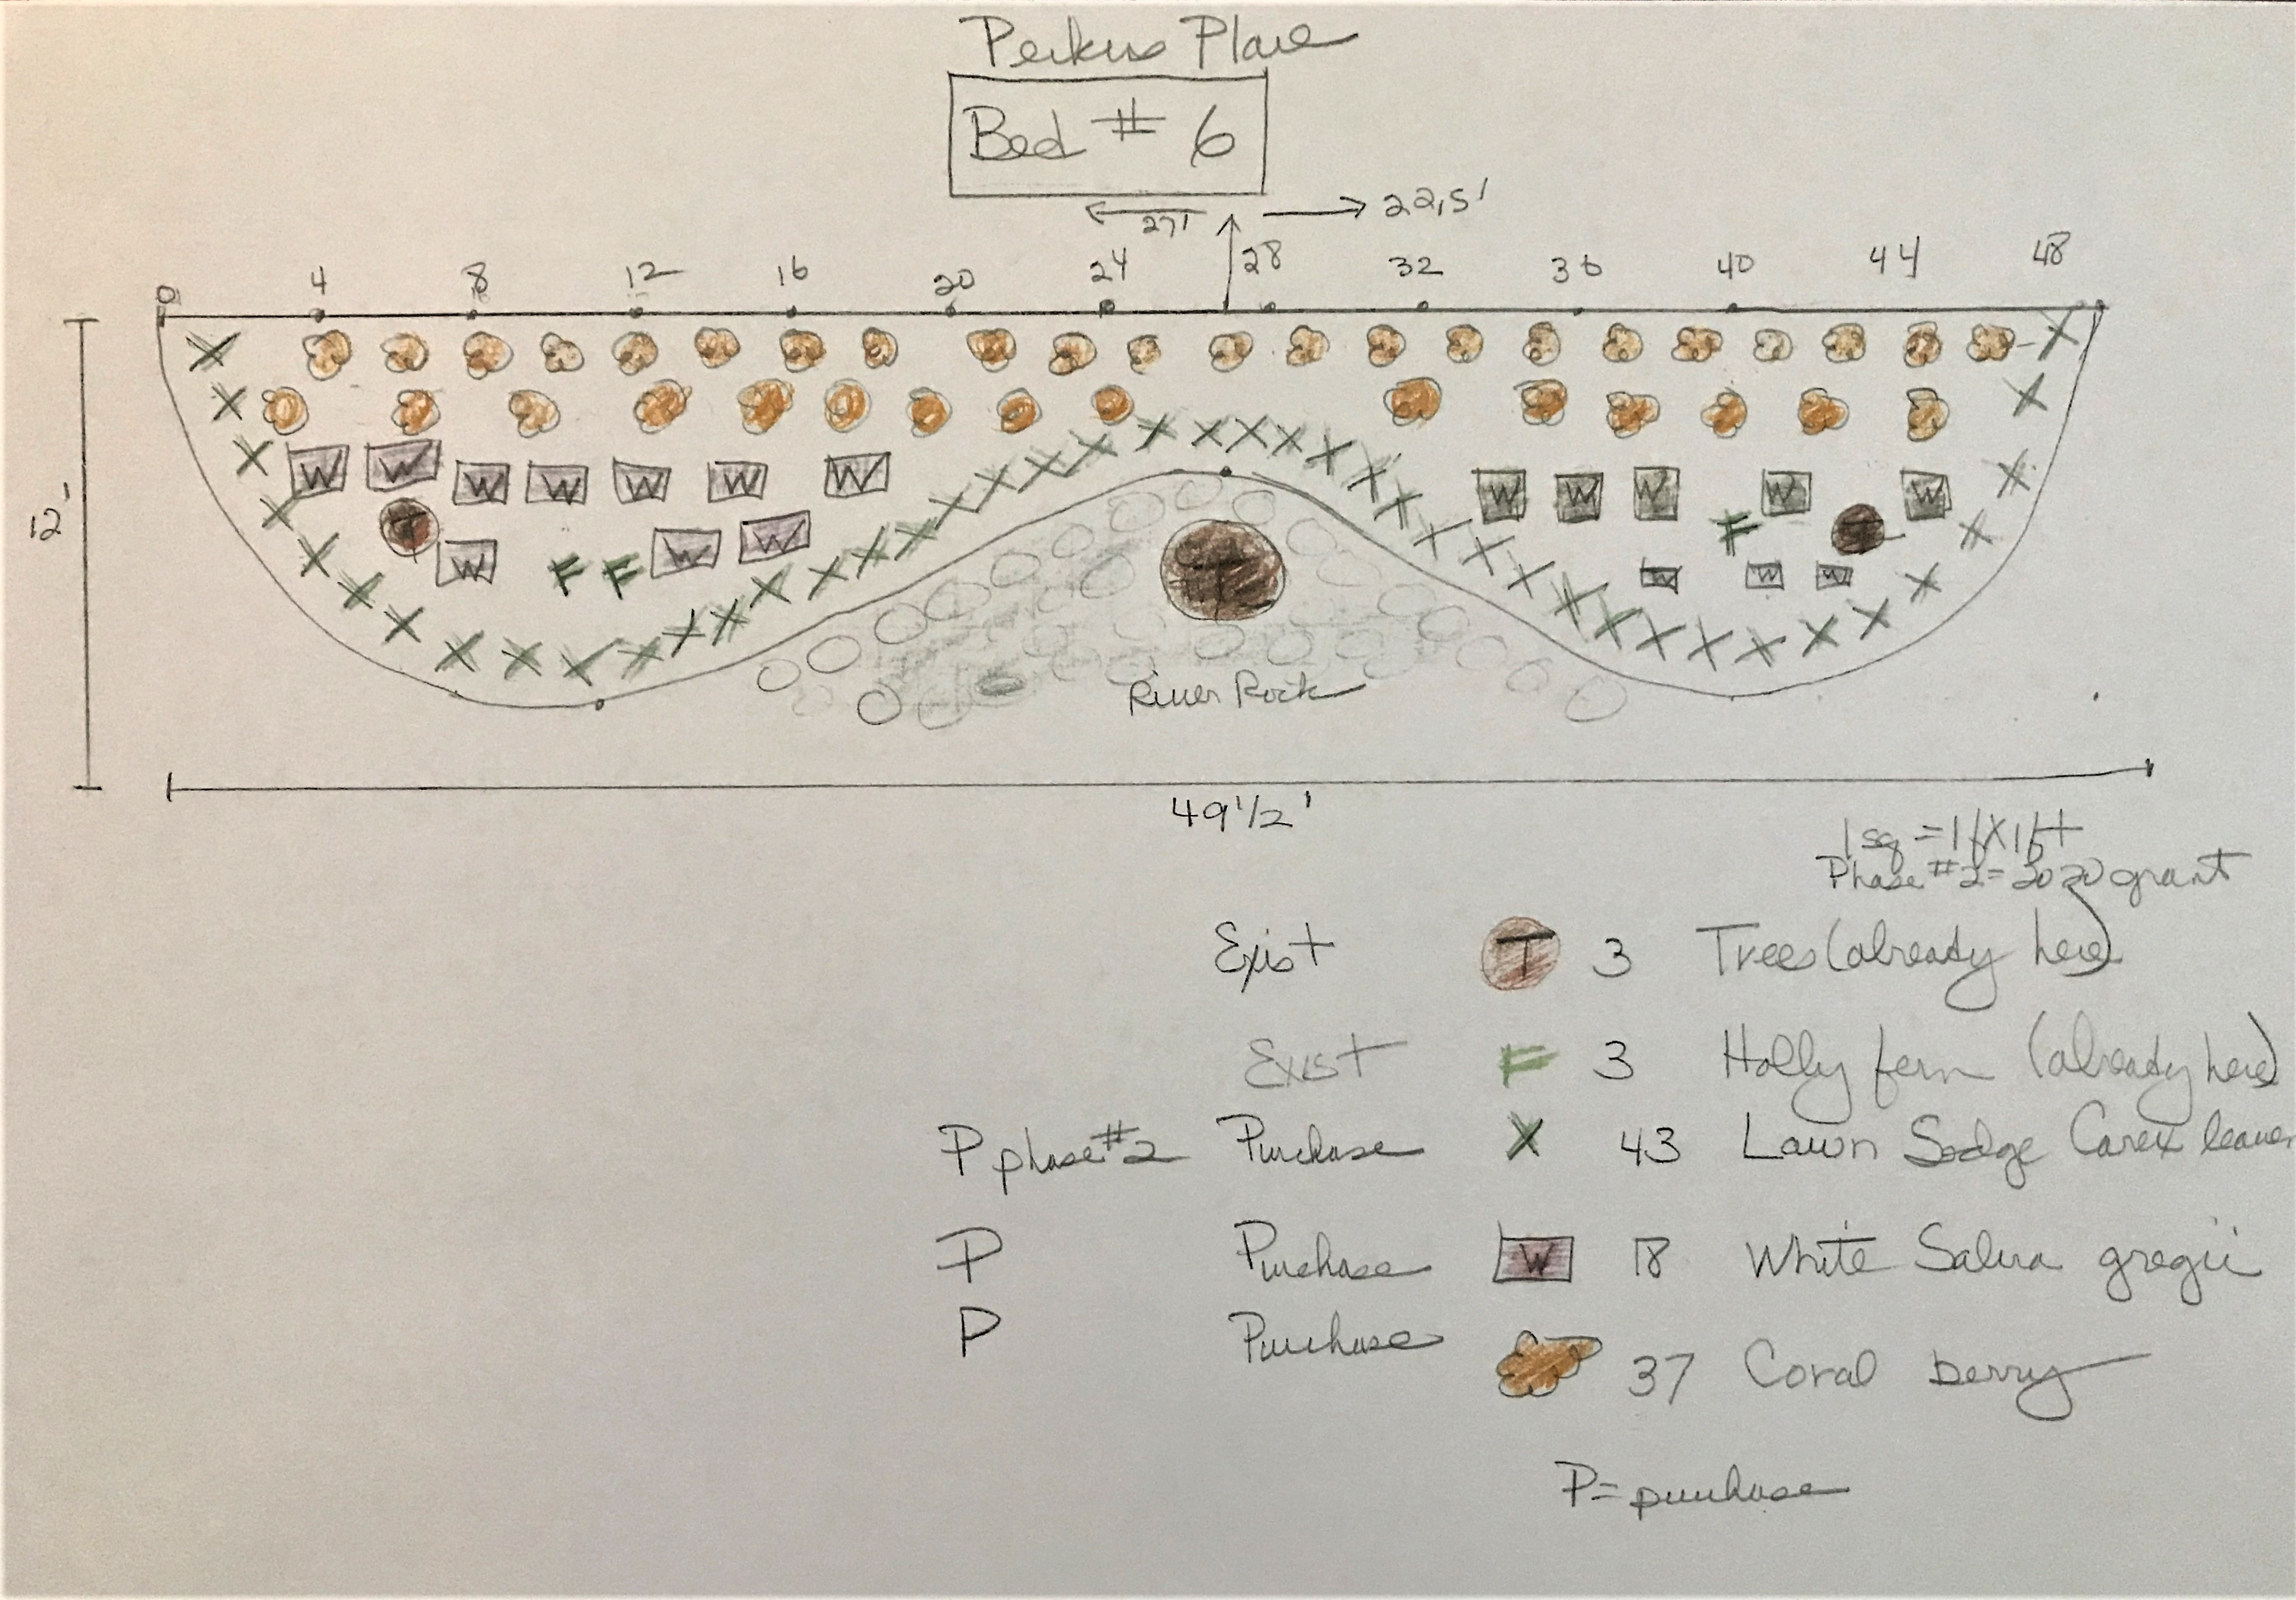 Perkins Place
Bed # 6
27' 22,5'
0 4 8 12 16 20 24 28 32 36 40 44 48
W W W W W W W W W W W W
T F T
W F F W W T W W W
12'
River Rock
49 1/2'
1 sq = 1ft X 1ft
Phase #2 = 2020 grant
Exist T 3 Trees (already here)
Exist F 3 Holly fern (already here)
P phase #2 Purchase X 43 Lawn Sedge Carex leaven
P Purchase W 18 White Salvia gregii
P Purchase 37 Coral berry
P = purchase